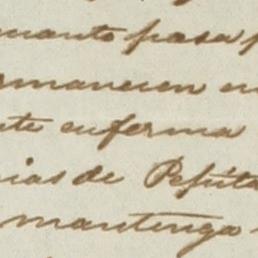 uanto pasa p
rmanecen en
nte enferma
cias de Pepita
mantenga